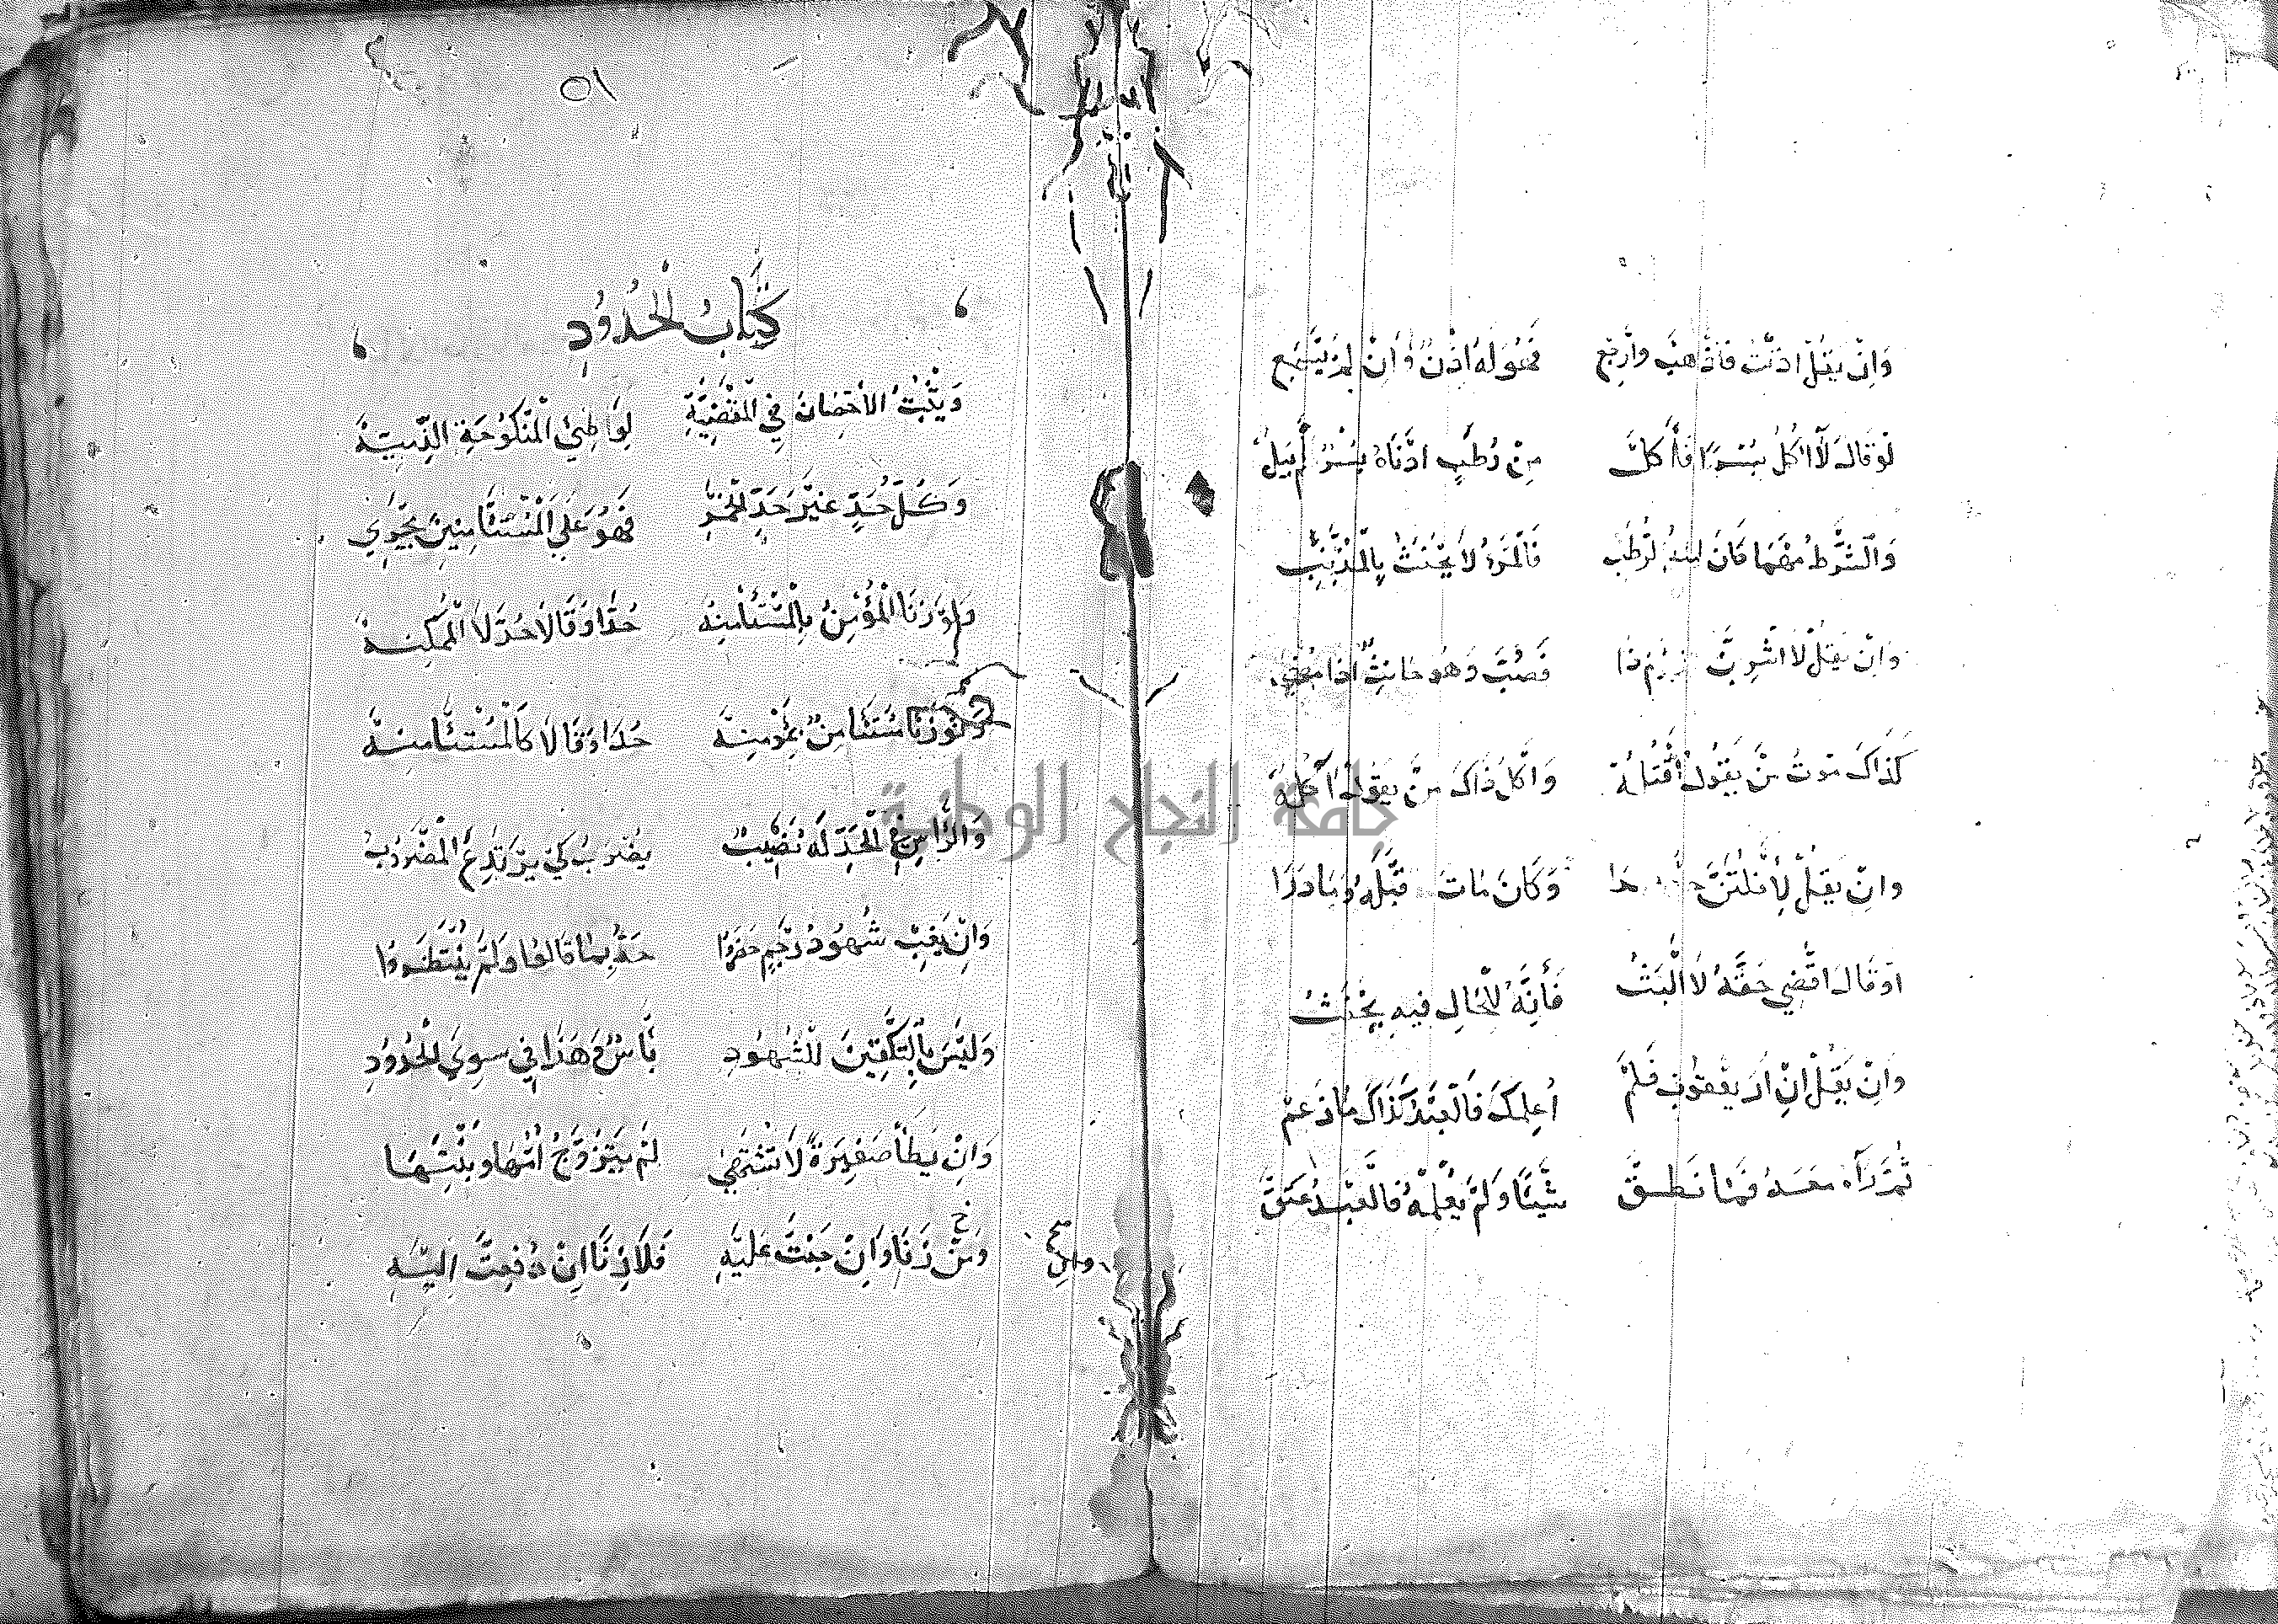 وَاِنْ يَقُلْ اذنْتُ فَاذْهَبْ وارْجِعِ فَهُوَ لَهُ اِذْنٌ وَاَنْ لَمْ يَسْمَعِ
لَوْ قَالَ لَا اكُلُ بُسْرًا فَأَكَلَ مِنْ رُطَبٍ
وَالشَّرْطُ مَهْمَا كَانَ فَالْمَرْءُ لَا يَحْنَثُ بِالْمُذَنِّبِ
وَاِنْ يَقُلْ لَا اشْرِبَنَّ ذَا فَصُبَّ وَهُوَ حَانِثٌ اذا
كَذَاكَ مَوْتُ مَنْ يَقُولُ أَقْتُلُهْ وَاكْلُ ذَاكَ مَنْ يَقُولُ آكُلُهْ
وَاِنْ يَقُلْ وَكَانَ مَاتَ قَبْلَهُ وَمَا دَرَا
اَوْ قَالَ اقْضِي حَقَّهُ لَا الْبَثُ فَأِنَّهُ لِلْحَالِ فيهِ يَحْنَثُ
وَاِنْ يَقُلْ اِنْ اَرَ يَعْقُوبَ فَلَمْ اُعْلِمْكَ فَالْعَبْدُ كَذَاكَ مَا زَعَمْ
ثُمَّ رَآهُ مَعَهُ فَمَا نَطَقْ شَيْئًا وَلَمْ يُعْلِمْهُ فَالْعَبْدُ عَتَقْ
٥١
كِتَابُ الْحُدُودِ
وَيَثْبُتُ الْاحْصَانُ فِي الْقَضِيَّةِ لِوَاطِئِ الْمَنْكُوحَةِ الذِّمِيَّةِ
وَكُلُّ حَدٍّ غَيْرَ حَدِّ الْخَمْرِ فَهُوَ عَلَى الْمُسْتَأْمِنِينَ يَجْرِي
وَلَوْ زَنَا الْمُؤْمِنُ بِالْمُسْتَأْمِنَهْ حُدَّا وَقَالَا حُدَّ لَا الْمُمَكِّنَهْ
وَلَوْ زَنَا مُسْتَأْمِنٌ بِمُؤْمِنَهْ حُدَا وَقَالَا لَا كَالْمُسْتَأْمِنَهْ
وَالرَّأْسُ فِي الْحَدِّ لَهُ نَصِيبُ يُضْرَبُ كَيْ يَرْتَدِعَ الْمَضْرُوبُ
وَاِنْ يَغِبْ شُهُودُ رَجْمٍ حَضَرُوا حُدَّ بِمَا قَالُوا وَلَمْ يُنْتَظَرُوا
وَلَيْسَ بِالتَّلْقِينِ لِلشُّهُودِ بَأْسٌ وَهَذَا فِي سِوَى الْحُدُودِ
وَاِنْ يَطَأْ صَغِيرَةً لَا تُشْتَهَى لَمْ يَتَزَوَّجْ أُمَّهَا وَبِنْتَهَا
وَمَنْ زَنَا وَاِنْ جَنَتْ عَلَيْهِ فَلَا زِنَا اِنْ دُفِعَتْ اِلَيْهِ
خ
صح
وان
جامعة النجاح الوطنية